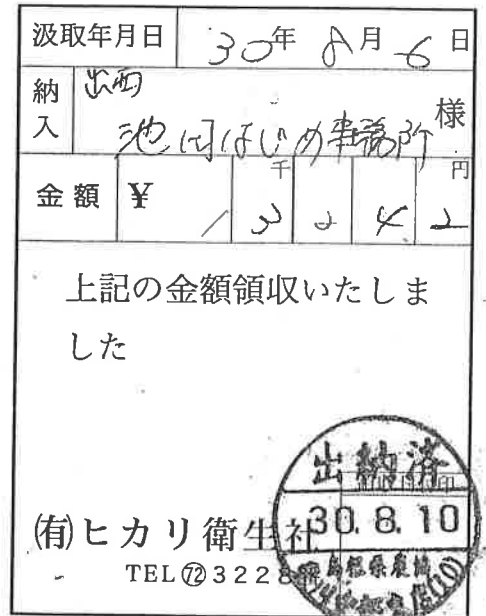 汲取年月日 30年 8月 6日
納入 出西
池田はじめ事務所 様
金額 ¥ 13242 千 円
上記の金額領収いたしま
した
出納済
30.8.10
島根県農協
㈲ヒカリ衛生社
TEL72322